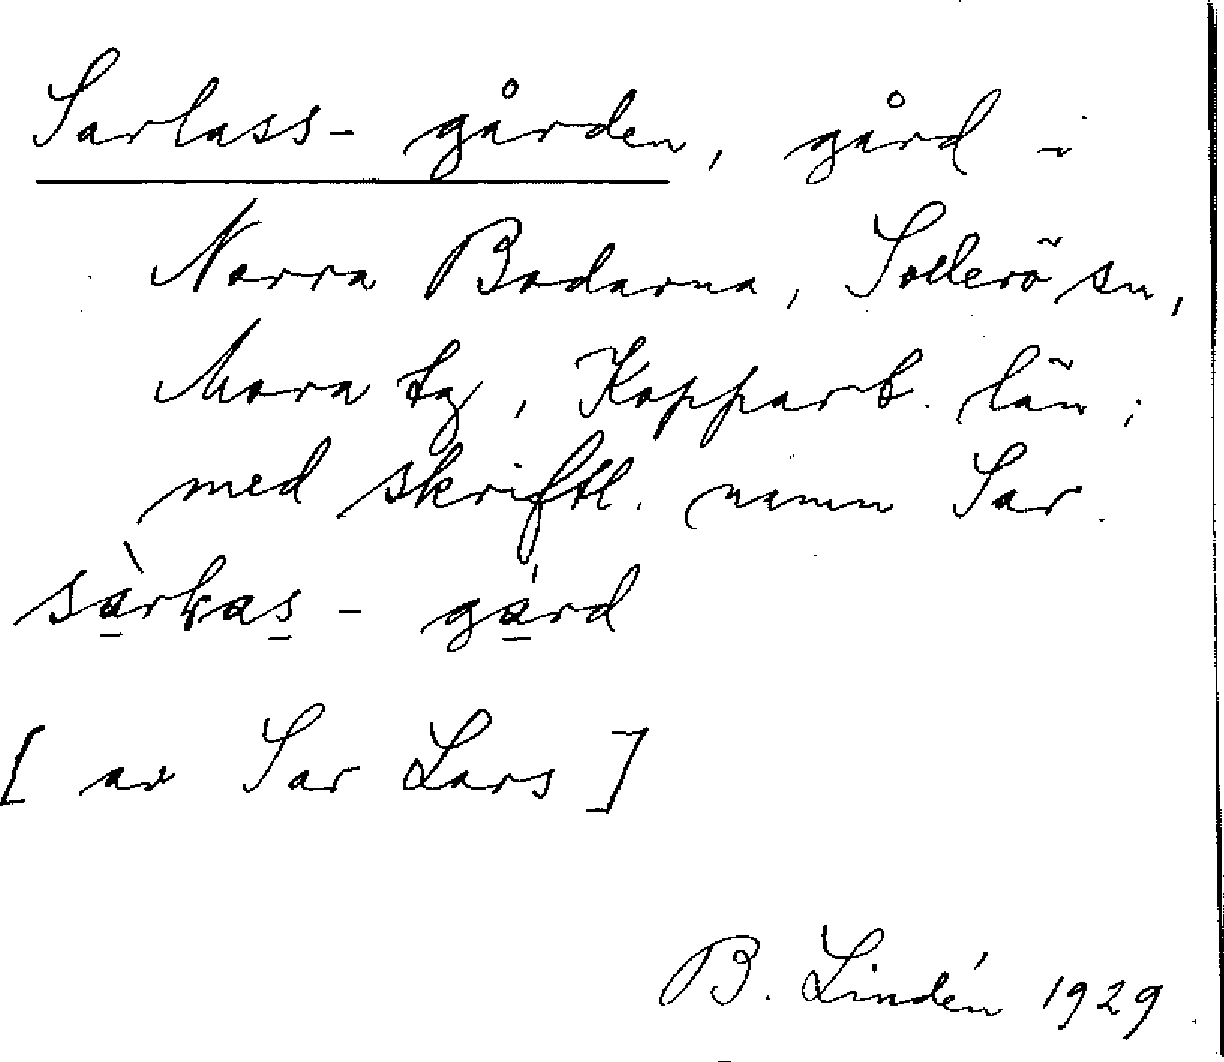 Sarlass-gården, gård i
Norra Bodarna, Sollerö sn,
Mora tg, Kopparb. län;
med skriftl. namn Sar.
sàrlas-gárd
[av Sar Lars]
B. Lindén 1929